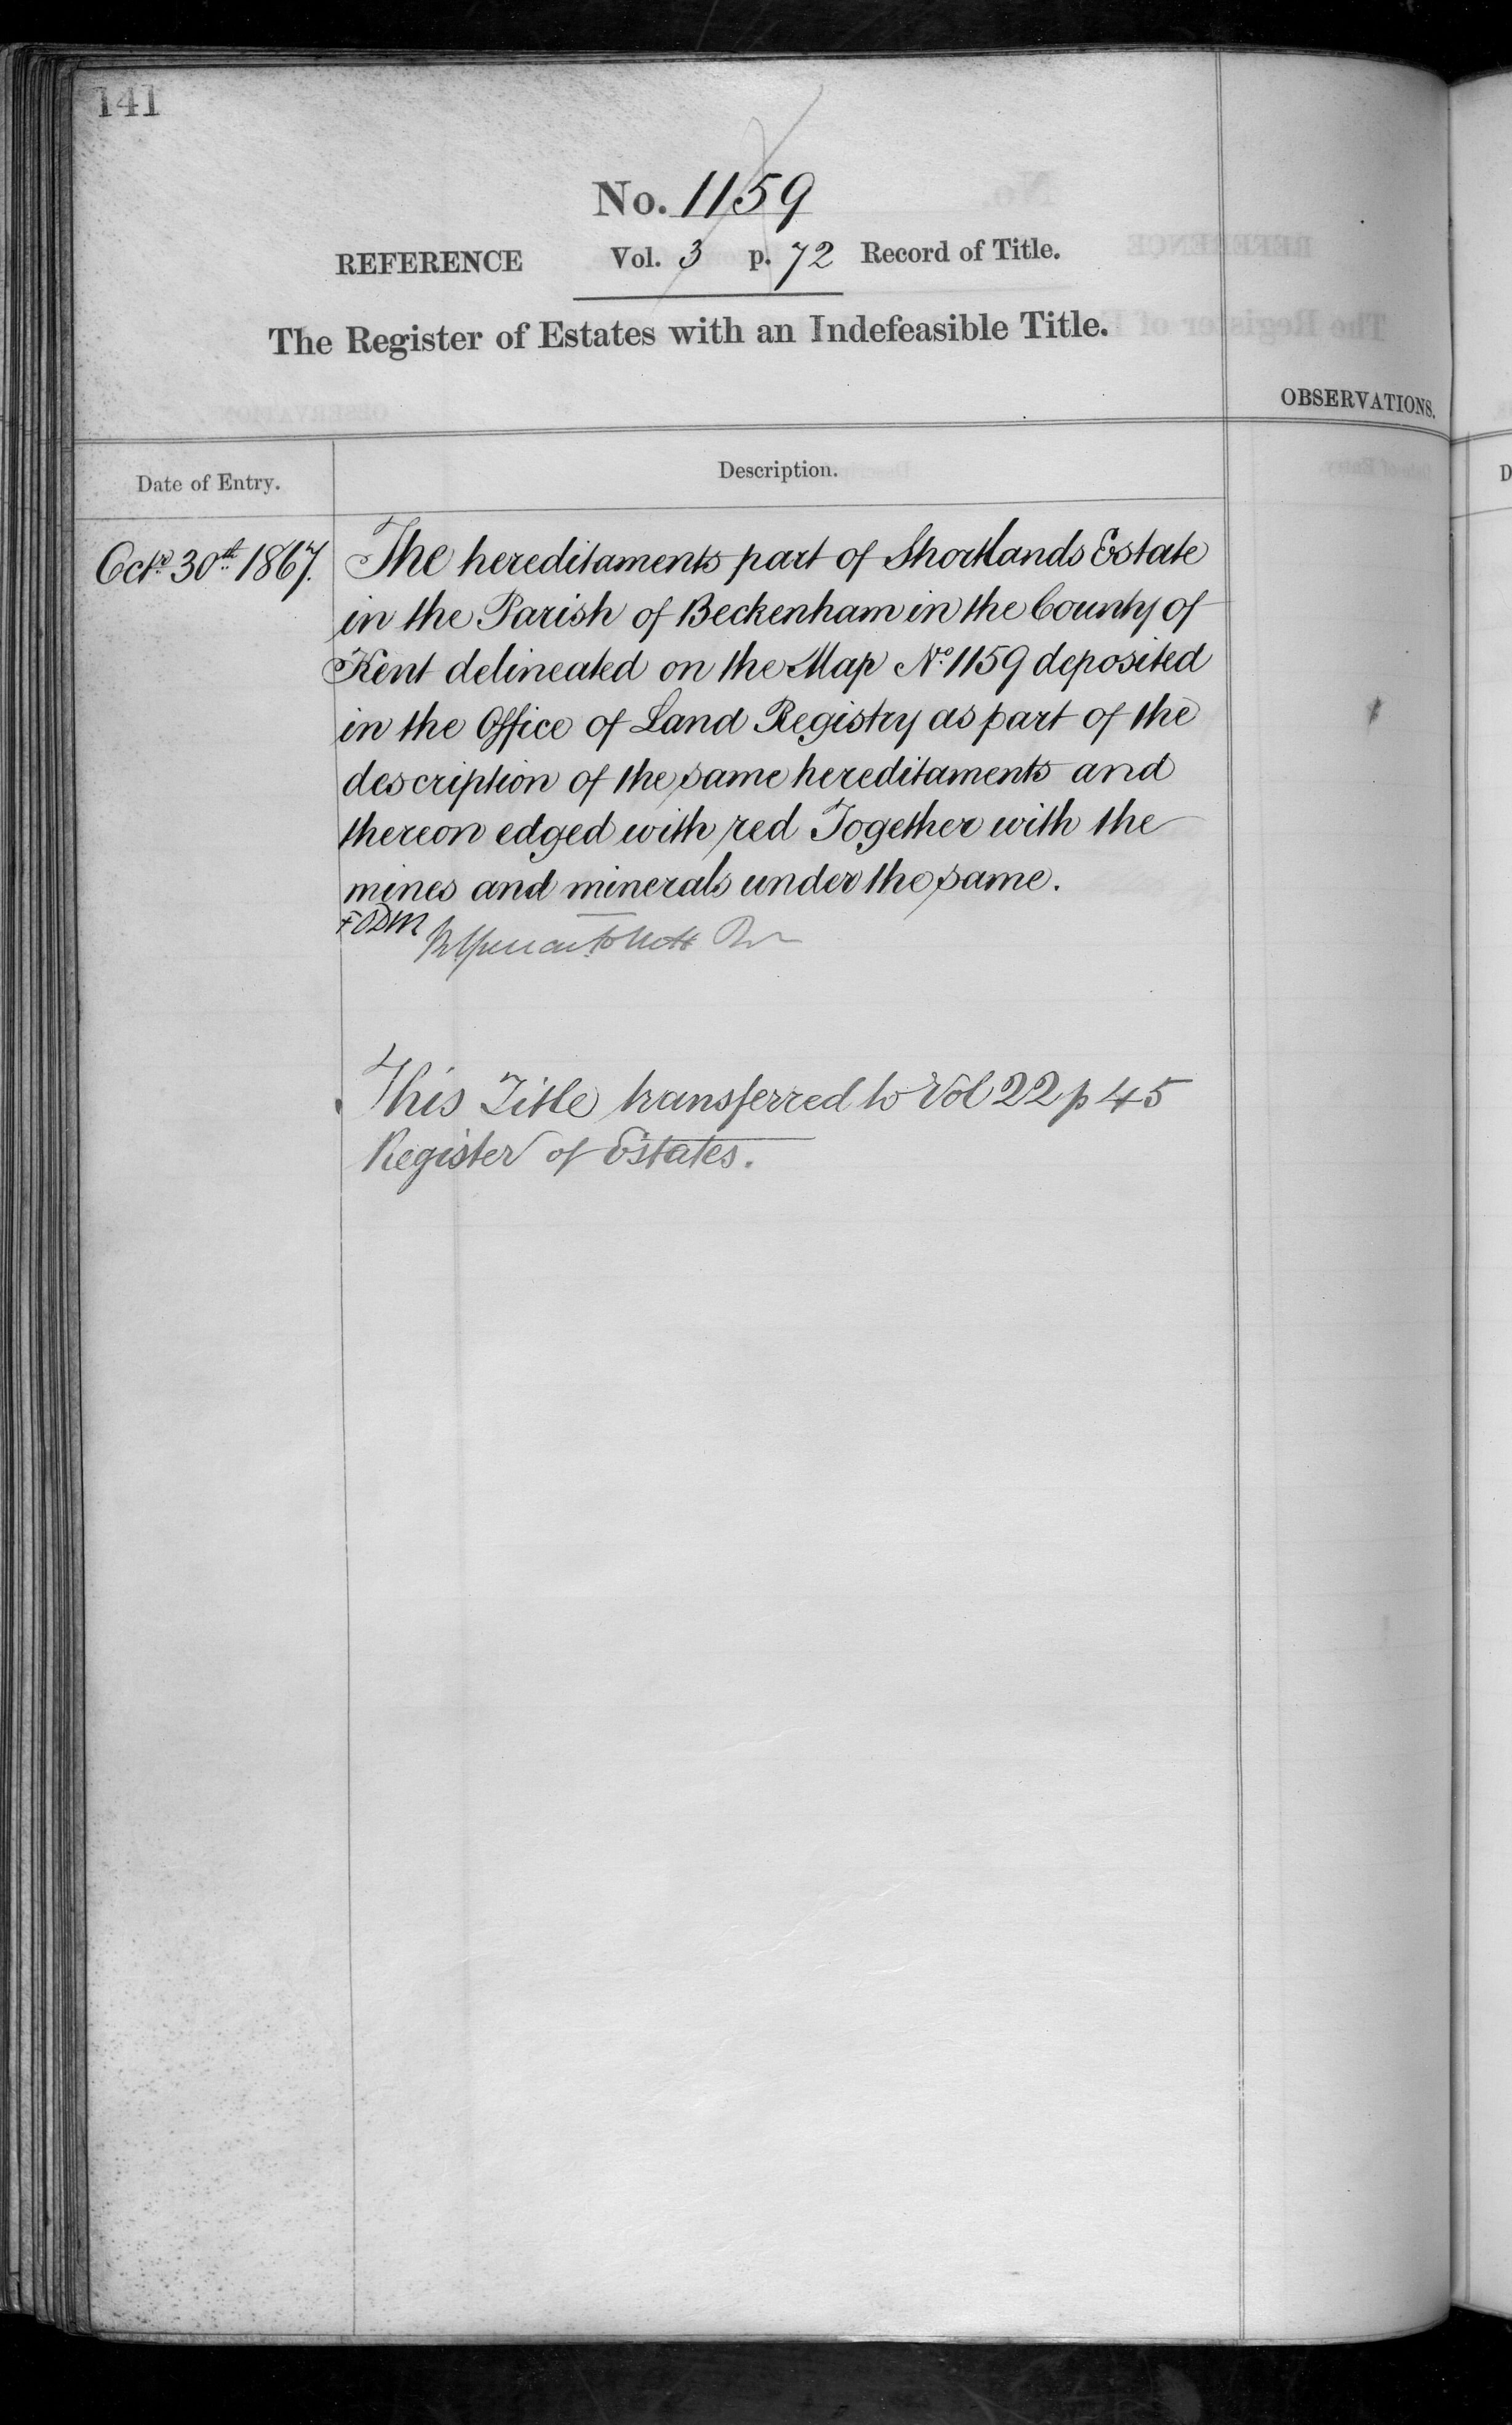 141
No. 1159
REFERENCE Vol. 3 p. 72 Record of Title.
The Register of Estates with an Indefeasible Title.
OBSERVATIONS.
Date of Entry.
Description.
Octr. 30th. 1867.
The hereditaments part of Shortlands Estate
in the Parish of Beckenham in the County of
Kent delineated on the Map No. 1159 deposited
in the Office of Land Registry as part of the
description of the same hereditaments and
thereon edged with red Together with the
mines and minerals under the same.
This Title transferred to Vol 22 p 45
Register of Estates.